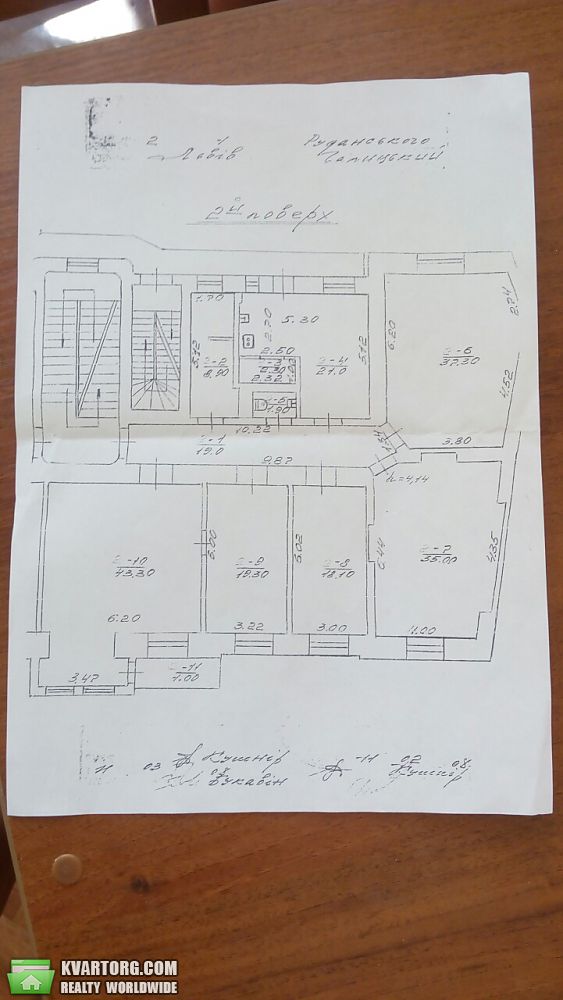 2 4 Руданського
Львів Галицький
2й поверх
1.70
5.30
2.70
5.12
2-2
8.90
2.50
2-3
2.30
2.32
2-4
21.0
5.12
2-5
1.90
6.20
2-6
37.30
2.74
4.52
3.80
10.22
2-1
19.0
9.87
1.54
h=4,14
2-10
43.30
6.00
2-9
19.30
6.02
2-8
18.10
6.44
2-7
35.00
4.35
6.20
3.22
3.00
4.00
3,47
2-11
1.00
11 03 Кушнір -11 -02 08
Букавін Кушнір
KVARTORG.COM
REALTY WORLDWIDE